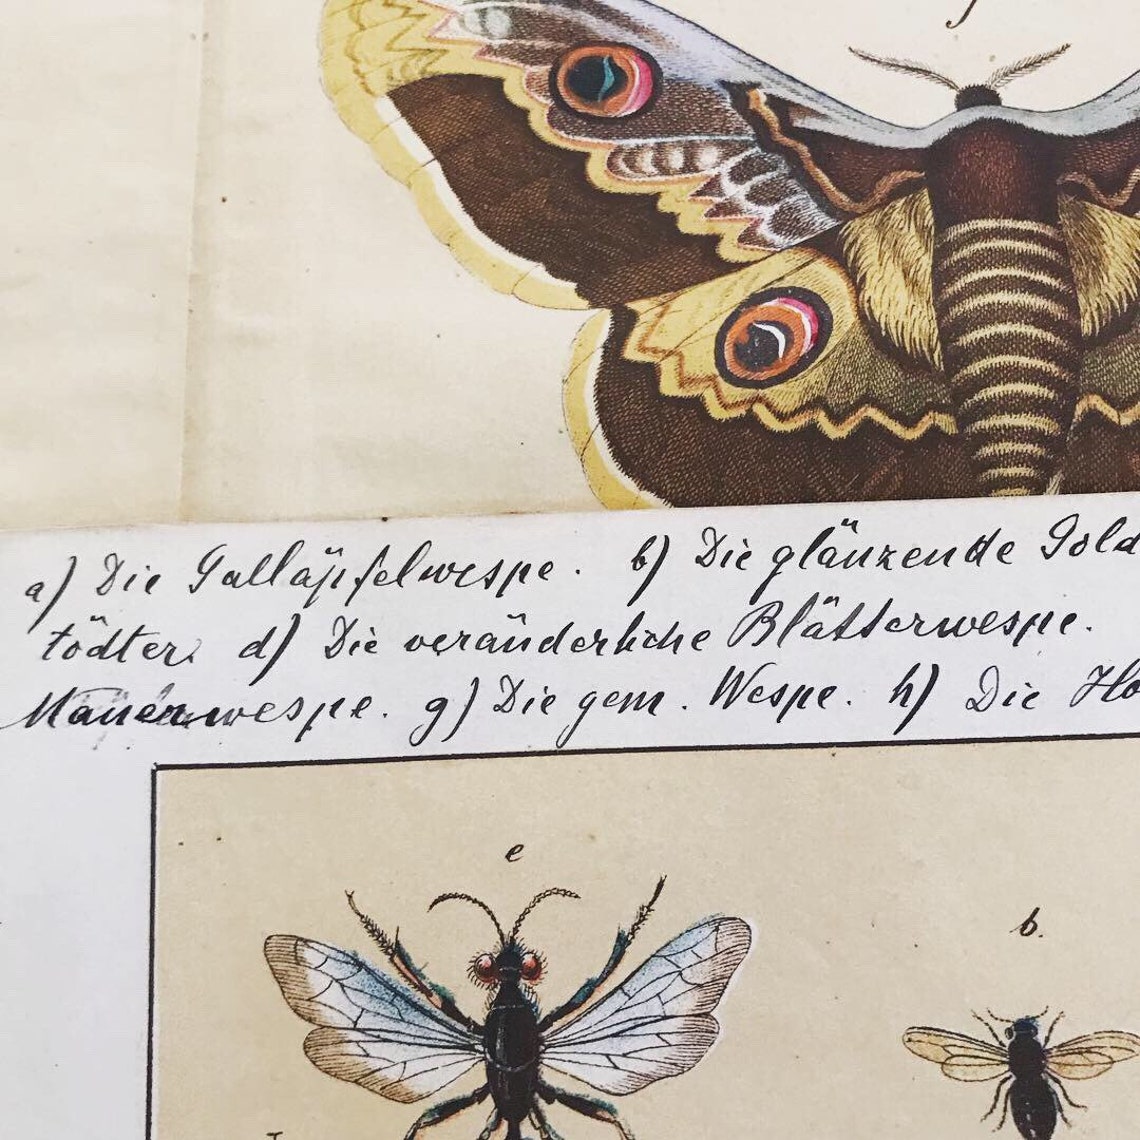 a) Die Galläpfelwespe. b) Die glänzende Gold
tödter. d) Die veränderliche Blätterwespe.
Mauerwespe. g) Die gem. Wespe. h) Die Ho
e
b.